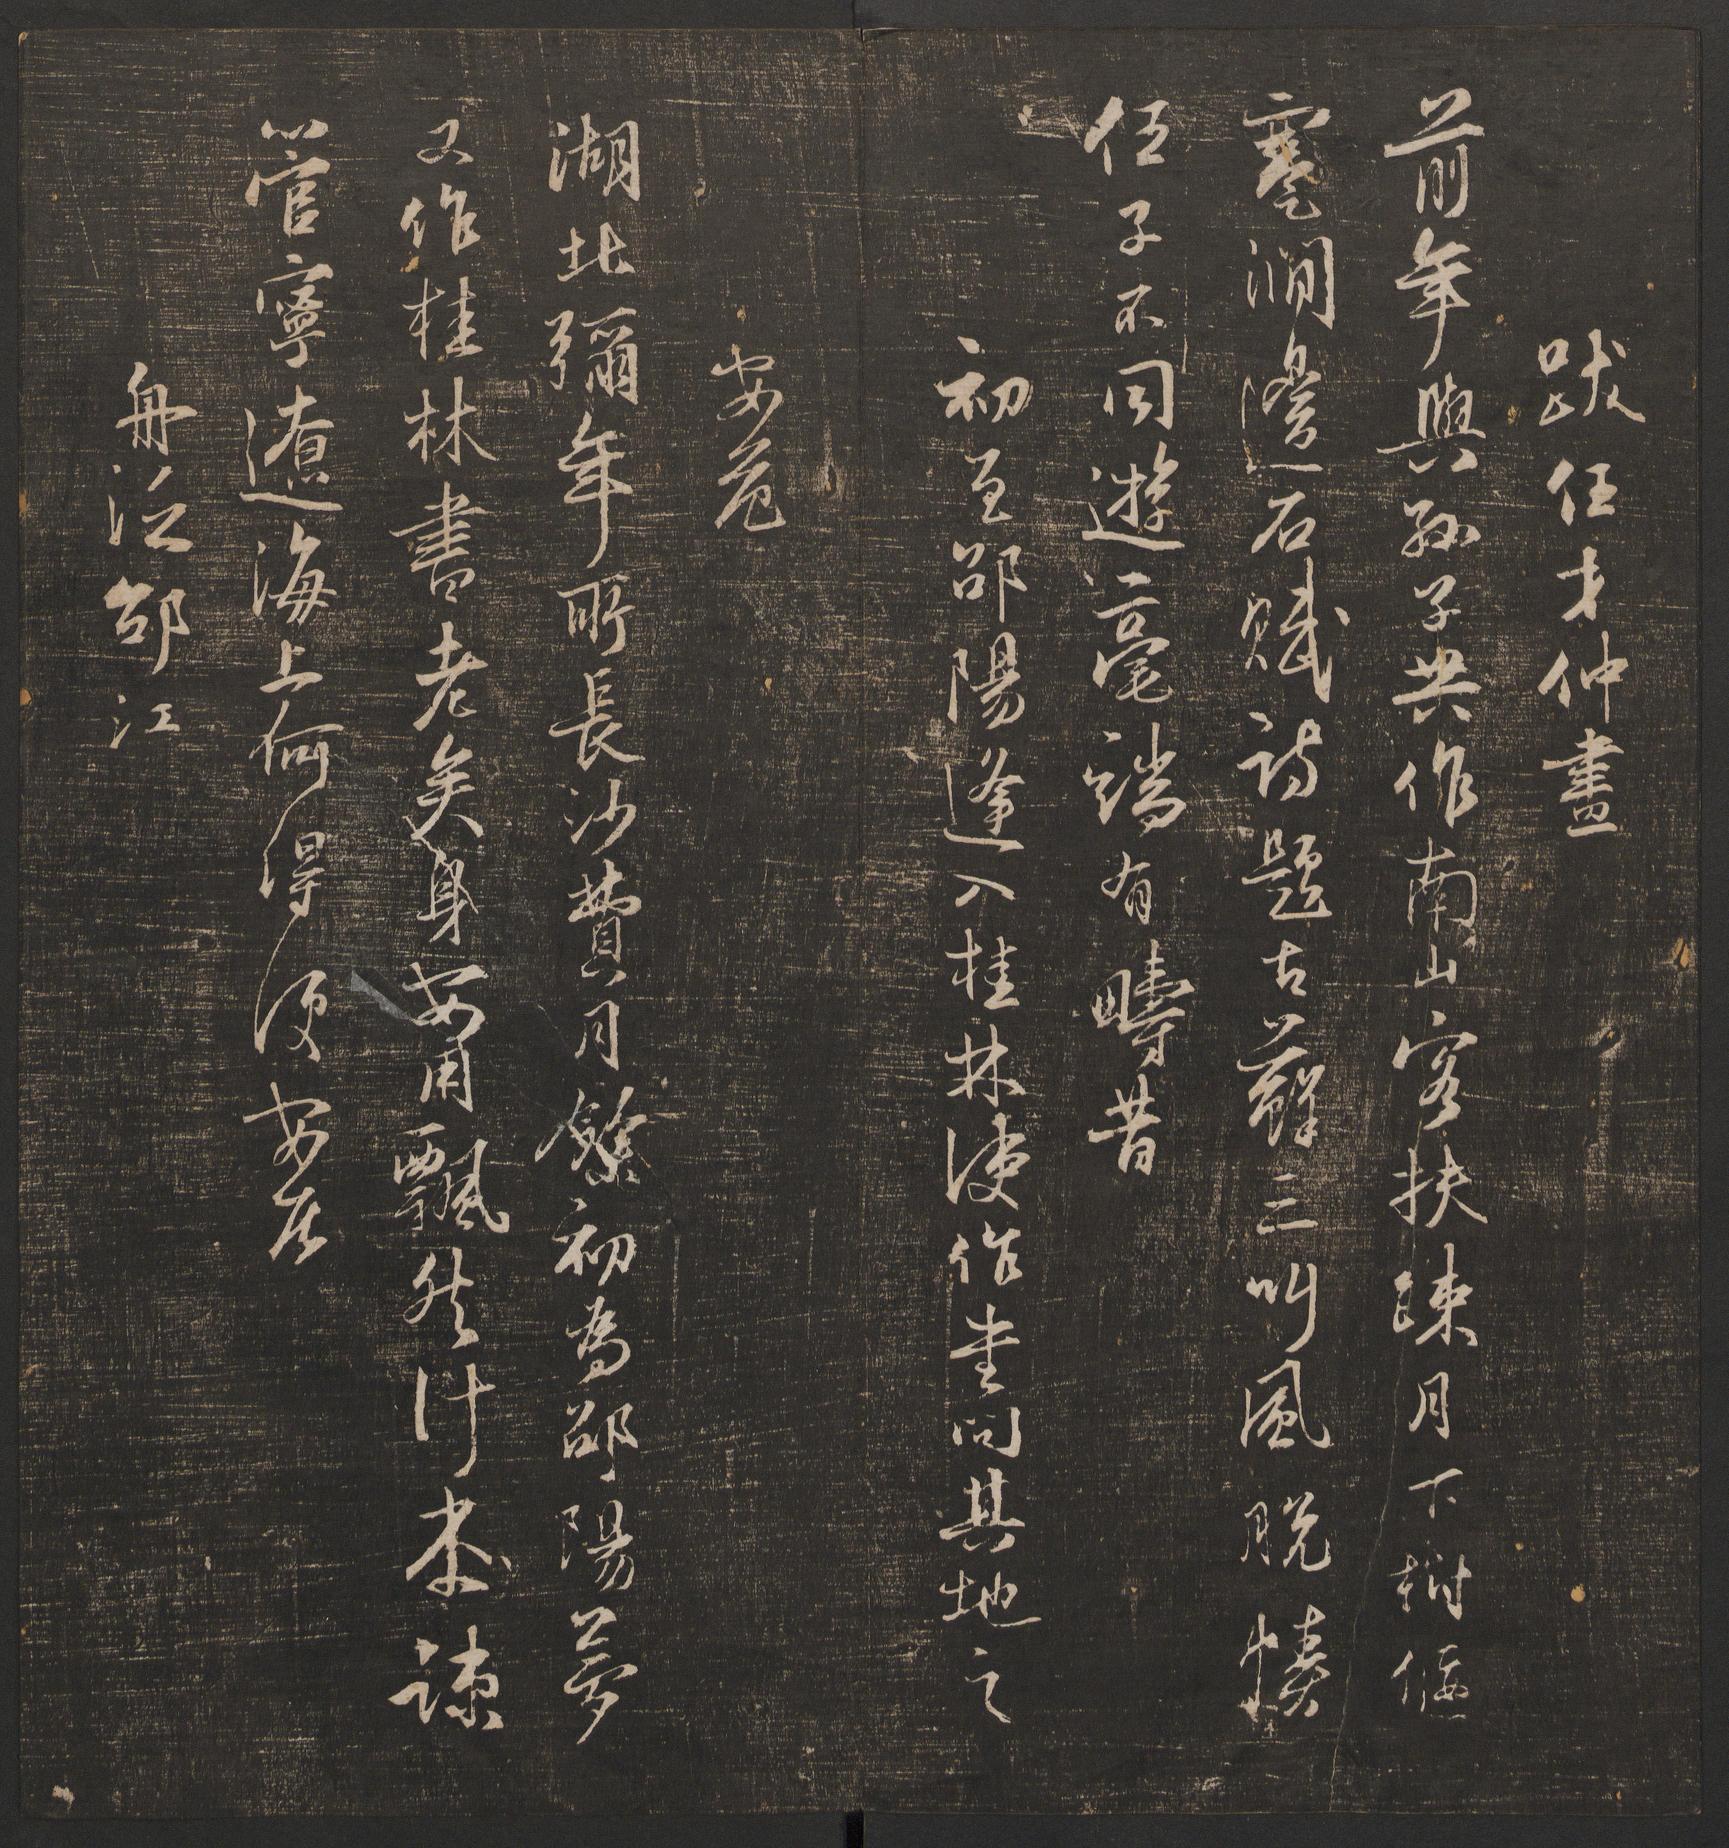 跋任才仲畫
前年與孫子共作南山客扶踈月下樹偃
蹇澗邊石賦詩題古蘚三叫風脫幘
任子不同遊毫端有疇昔
初至邵陽逢入桂林使作書問其地之
安危
湖北彌年所長沙費月餘初為邵陽夢
又作桂林書老矣身安用飄然計本踈
管寧遼海上何得便安居
舟泛邵江